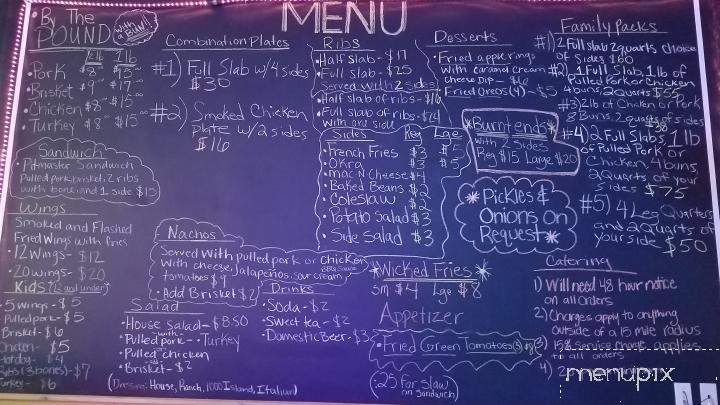 MENU
By The
POUND
with
a Bun!!
1/2 lb 1 lb
Pork $8 $15
Brisket $9 $17
Chicken $8 $15
Turkey $8 $15
Sandwich
Pitmaster Sandwich
Pulled pork, brisket, 2 ribs
with bone and 1 side $13
Wings
Smoked and Flashed
Fried Wings with fries
12 Wings - $12
20 wings - $20
Kids
5 wings - $5
Pulled pork - $5
Brisket - $6
Chicken - $5
Hotdog - $4
Ribs (3 bones) - $7
Turkey - $6
Combination Plates
#1) Full Slab w/4 sides
$30
#2) Smoked Chicken
plate w/2 sides
$16
Nachos
Served with pulled pork or chicken
with cheese, jalapeños, sour cream,
BBQ sauce
tomatoes $9
Add Brisket $2
Salad
House Salad - $8.50
with
Pulled pork - Turkey
Pulled chicken
Brisket - $2
(Dressing: House, Ranch, 1000 Island, Italian)
Drinks
Soda - $2
Sweet tea - $2
Domestic Beer - $3
Ribs
Half slab - $17
Full slab - $25
Served with 2 sides
Half slab of ribs - $16
Full slab of ribs - $24
with one side
Sides Reg Lage
French Fries $3 $5
Okra $3 $5
mac-n-cheese $4
Baked Beans $2
Coleslaw $2
Potato Salad $3
Side Salad $3
Desserts
Fried apple rings
with caramel cream
cheese Dip - $6
Fried Oreos (4) - $5
Burnt ends
with 2 Sides
Reg $15 Large $20
Pickles &
Onions on
Request
Wicked Fries
Sm $4 Lage $8
Appetizer
Fried Green Tomatoes (5) $8
(.25 for slaw
on sandwich)
Family Packs
#1) 2 Full slab 2 quarts choice
of sides $60
#2) 1 Full Slab, 1 lb of
Pulled Pork or Chicken
4 buns, 2 Quarts $55
#3) 2 lb of Chicken or Pork
8 Buns, 2 quarts of sides
#4) 2 Full Slabs, 1 lb
of Pulled Pork or
Chicken, 4 buns,
2 Quarts of your
sides $75
#5) 4 Leg Quarters
and 2 Quarts of
your side $50
Catering
1) Will need 48 hour notice
on all orders
2) Charges apply to anything
outside of a 15 mile radius
3) 15% service charge applies
to all orders
4)
menupix